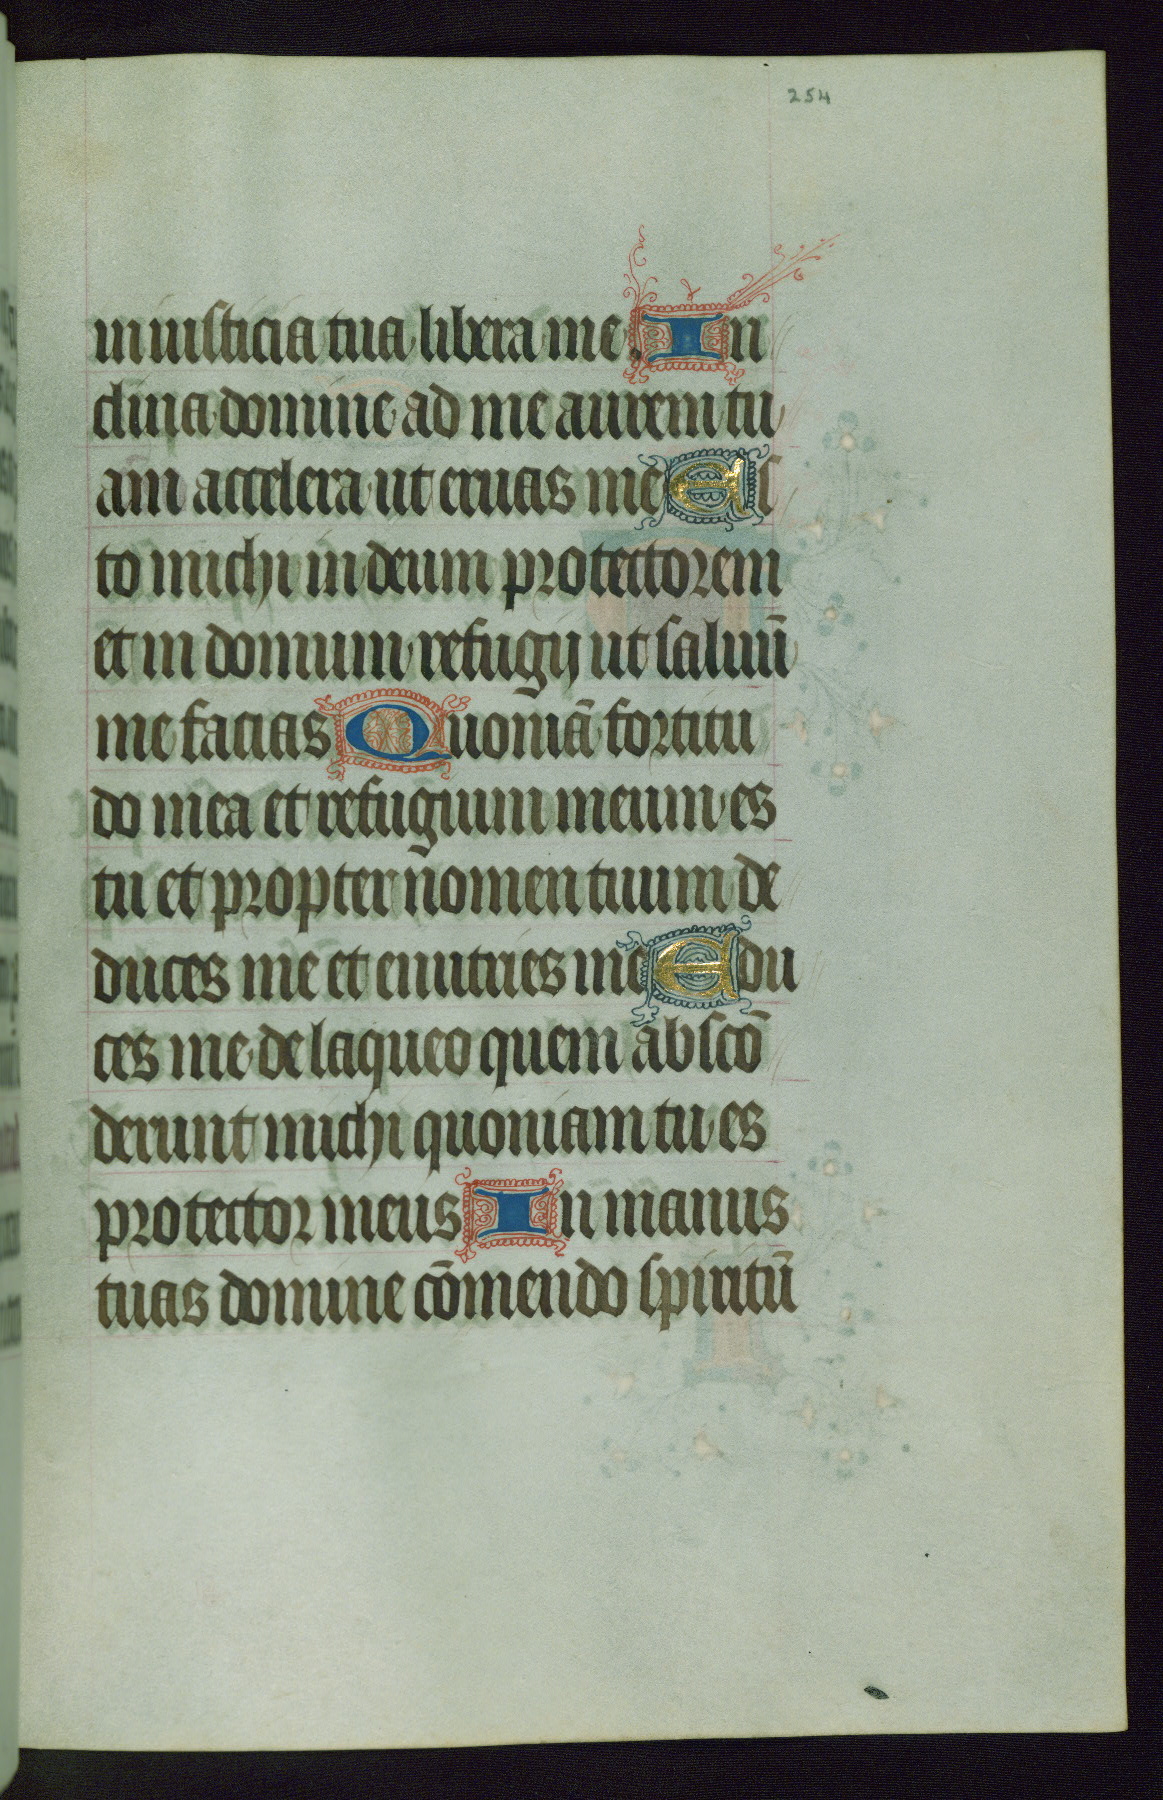 254
in iusticia tua libera me In
clina domine ad me aurem tu
am accelera ut eruas me Es
to michi in deum protectorem
et in domum refugij ut saluū
me facias Quoniā fortitu
do mea et refugium meum es
tu et propter nomen tuum de
duces me et enutries me Edu
ces me de laqueo quem abscō
derunt michi quoniam tu es
protector meus In manus
tuas domine cōmendo spiritū